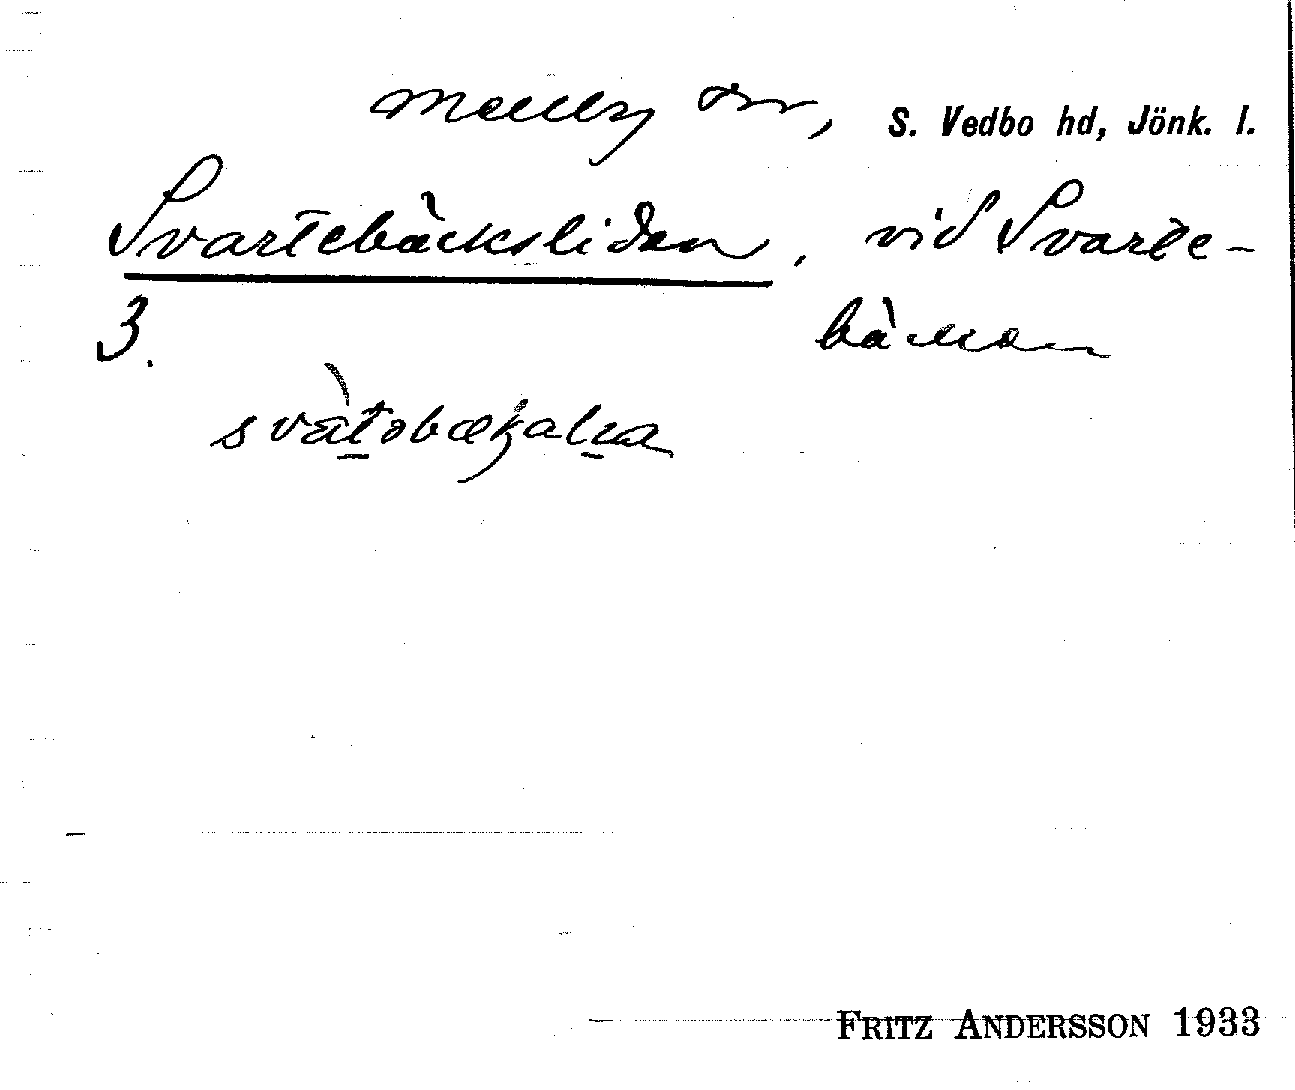 Mellby sn, S. Vedbo hd, Jönk. l.
Svartebäcksliden, vid Svarte-
3. bäcken
FRITZ ANDERSSON 1933